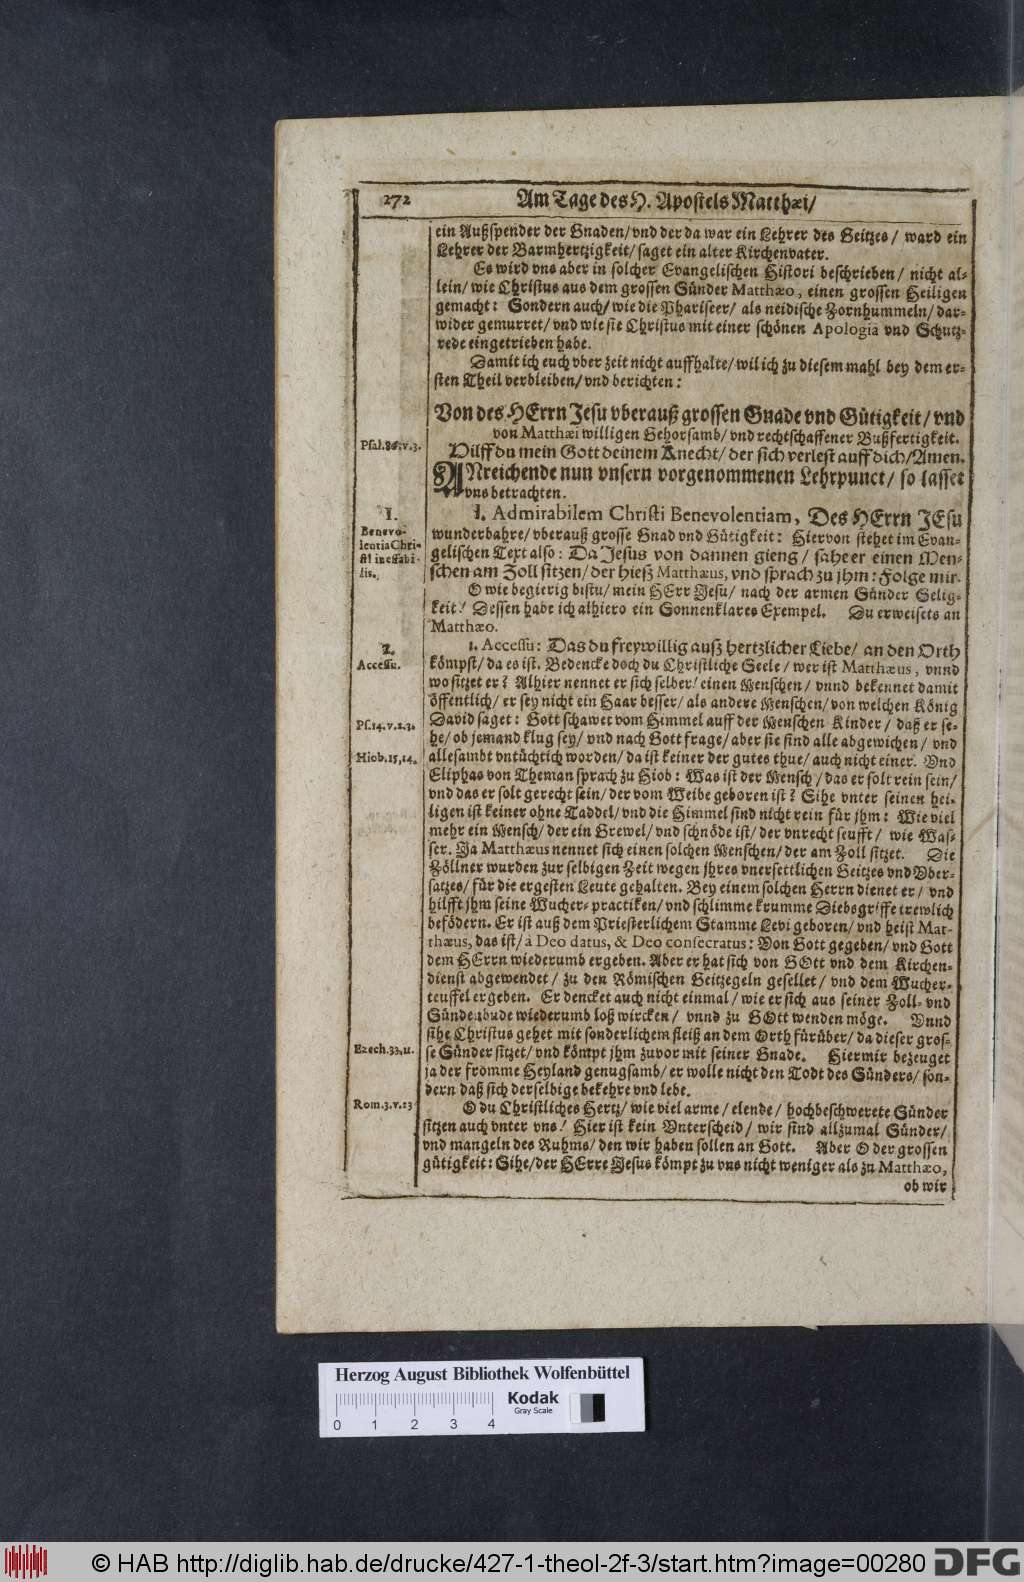 272 Am Tage des H. Apostels Matthæi/
ein Außspender der Gnaden/ vnd der da war ein Lehrer des Geitzes/ ward ein
Lehrer der Barmhertzigkeit/ saget ein alter Kirchenvater.
Es wird vns aber in solcher Evangelischen Histori beschrieben/ nicht al-
lein/ wie Christus aus dem grossen Sünder Matthæo, einen grossen Heiligen
gemacht: Sondern auch/ wie die Phariseer/ als neidische Zornhummeln/ dar-
wider gemurret/ vnd wie sie Christus mit einer schönen Apologia vnd Schutz-
rede eingetrieben habe.
Damit ich euch vber zeit nicht auffhalte/ wil ich zu diesem mahl bey dem er-
sten Theil verbleiben/ vnd berichten:
Von des HErrn Jesu vberauß grossen Gnade vnd Gütigkeit/ vnd
von Matthæi willigen Gehorsamb/ vnd rechtschaffener Bußfertigkeit.
Psal.86.v.3.
Hilff du mein Gott deinem Knecht/ der sich verlest auff dich/ Amen.
ANreichende nun vnsern vorgenommenen Lehrpunct/ so lasset
vns betrachten.
I.
Benevo-
lentia Chri-
sti ineffabi-
lis.
I. Admirabilem Christi Benevolentiam, Des HErrn JEsu
wunderbahre/ vberauß grosse Gnad vnd Gütigkeit: Hiervon stehet im Evan-
gelischen Text also: Da Jesus von dannen gieng/ sahe er einen Men-
schen am Zoll sitzen/ der hieß Matthæus, vnd sprach zu jhm: Folge mir.
O wie begierig bistu/ mein HErr Jesu/ nach der armen Sünder Selig-
keit! Dessen habe ich alhiero ein Sonnenklares Exempel. Du erweisets an
Matthæo.
1.
Accessu.
1. Accessu: Das du freywillig auß hertzlicher Liebe/ an den Orth
kömpst/ da es ist. Bedencke doch du Christliche Seele/ wer ist Matthæus, vnnd
wo sitzet er? Alhier nennet er sich selber/ einen Menschen/ vnnd bekennet damit
öffentlich/ er sey nicht ein Haar besser/ als andere Menschen/ von welchen König
Ps.14.v.2.3.
David saget: Gott schawet vom Himmel auff der Menschen Kinder/ daß er se-
he/ ob jemand klug sey/ vnd nach Gott frage/ aber sie sind alle abgewichen/ vnd
Hiob.15,14.
allesambt vntüchtich worden/ da ist keiner der gutes thue/ auch nicht einer. Vnd
Eliphas von Theman sprach zu Hiob: Was ist der Mensch/ das er solt rein sein/
vnd das er solt gerecht sein/ der vom Weibe geboren ist? Sihe vnter seinen hei-
ligen ist keiner ohne Taddel/ vnd die Himmel sind nicht rein für jhm: Wie viel
mehr ein Mensch/ der ein Grewel/ vnd schnöde ist/ der vnrecht seufft/ wie Was-
ser. Ja Matthæus nennet sich einen solchen Menschen/ der am Zoll sitzet. Die
Zöllner wurden zur selbigen Zeit wegen jhres vnersettlichen Geitzes vnd Vber-
satzes/ für die ergesten Leute gehalten. Bey einem solchen Herrn dienet er/ vnd
hilfft jhm seine Wucher-practiken/ vnd schlimme krumme Diebsgriffe trewlich
befödern. Er ist auß dem Priesterlichem Stamme Levi geboren/ vnd heist Mat-
thæus, das ist/ à Deo datus, & Deo consecratus: Von Gott gegeben/ vnd Gott
dem HErrn wiederumb ergeben. Aber er hat sich von GOtt vnd dem Kirchen-
dienst abgewendet/ zu den Römischen Geitzegeln gesellet/ vnd dem Wucher-
teuffel ergeben. Er dencket auch nicht einmal/ wie er sich aus seiner Zoll- vnd
Sündenbude wiederumb loß wircken/ vnnd zu GOtt wenden möge. Vnnd
sihe Christus gehet mit sonderlichem fleiß an dem Orth fürüber/ da dieser gros-
Ezech.33,11.
se Sünder sitzet/ vnd kömpt jhm zuvor mit seiner Gnade. Hiermir bezeuget
ja der fromme Heyland genugsamb/ er wolle nicht den Todt des Sünders/ son-
dern daß sich derselbige bekehre vnd lebe.
Rom.3.v.23
O du Christliches Hertz/ wie viel arme/ elende/ hochbeschwerete Sünder
sitzen auch vnter vns! Hier ist kein Vnterscheid/ wir sind allzumal Sünder/
vnd mangeln des Ruhms/ den wir haben sollen an Gott. Aber O der grossen
gütigkeit: Sihe/ der HErre Jesus kömpt zu vns nicht weniger als zu Matthæo,
ob wir
Herzog August Bibliothek Wolfenbüttel
0 1 2 3 4
Kodak
Gray Scale
© HAB http://diglib.hab.de/drucke/427-1-theol-2f-3/start.htm?image=00280
DFG